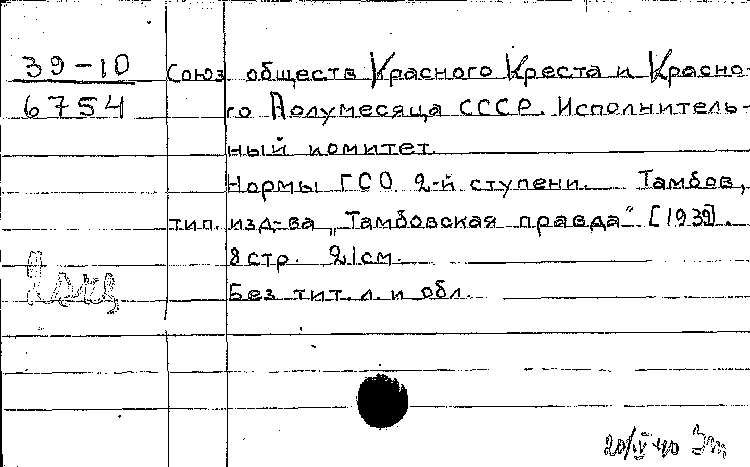 39-10
6754
Союз обществ Красного Креста и Красно-
го Полумесяца СССР. Исполнитель-
ный комитет.
Нормы ГСО 2-й ступени. Тамбов,
тип. изд-ва „Тамбовская правда" [1939].
8 стр. 21 см.
Без тит. л. и обл.
2 экз
20/IV-40